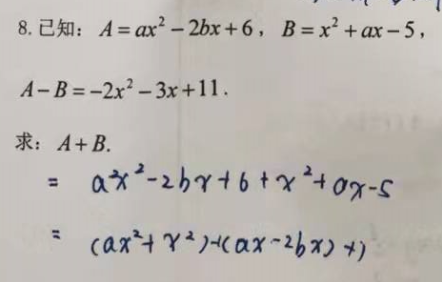 8. 已知：A=ax²－2bx＋6，B=x²＋ax－5，
A－B=－2x²－3x＋11．
求：A＋B.
= a²x²-2bx+6+x²+ax-5
= (ax²+x²)+(ax-2bx)+1